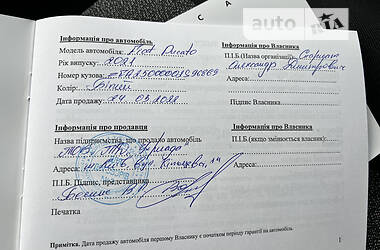 auto RIA
Інформація про автомобіль
Модель автомобіля: Fiat Ducato
Рік випуску: 2021
Номер кузова:
Колір: Білий
Дата продажу: 14.03.2022
Інформація про Власника
П.І.Б.(Назва організації)
Олександр Дмитрович
Адреса:
Підпис Власника
Інформація про продавця
Назва підприємства, що продало автомобіль
ТОВ
Адреса: м.Київ, вул. Кільцева, 14
П.І.Б. Підпис, представника
Печатка
Інформація про Власника
П.І.Б.(якщо змінюється власник)
Адреса:
Примітка. Дата продажу автомобіля першому Власнику є початком періоду гарантії на автомобіль.
1